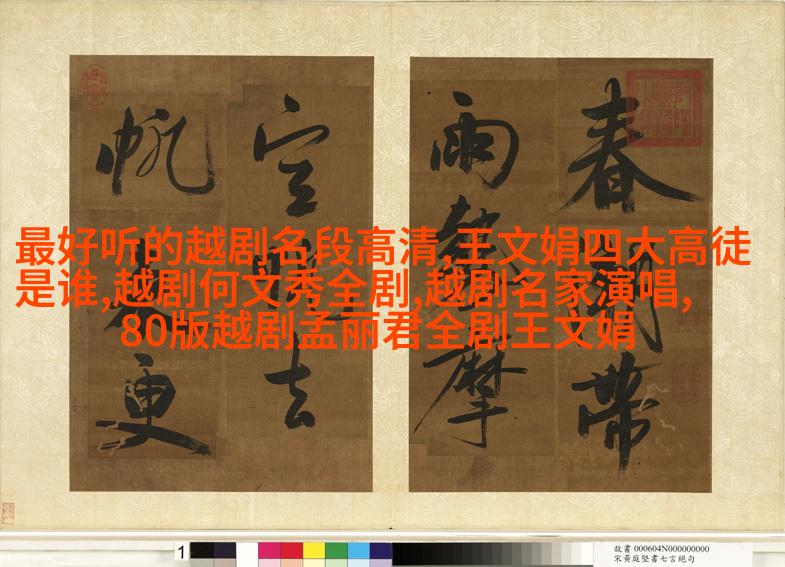 最好听的越剧名段高清,王文娟四大高徒
是谁,越剧何文秀全剧,越剧名家演唱,
80版越剧孟丽君全剧王文娟
春帶
雨摩
空去
帆更
1
故書 000604N000000000
宋黃庭堅書七言絕句